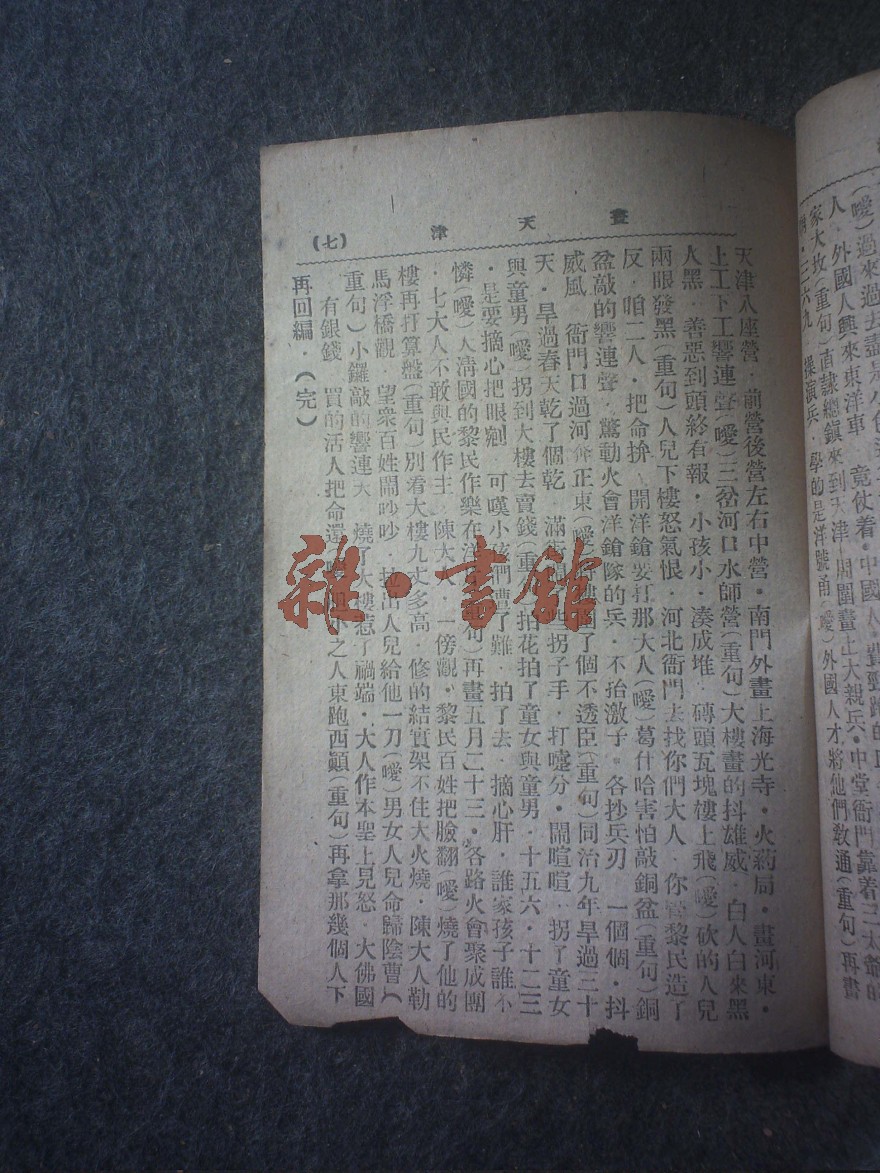 畫天津
(七)
天津入座營·前營後營左右中營·南門外畫上海光寺·火药局·畫河東·
上工下工響連聲(噯)三岔河口水師營(重句)大樓畫的抖雄威·白人白來黑
人黑·善惡到頭終有報·小孩小·凑成堆·磚頭瓦塊樓上飛(噯)砍的人兒
兩眼發黑(重句)人兒下樓怒氣恨·河北衙門去找你們大人·你管黎民造了
反·咱二人·把命拚·開洋鎗要扛那大人(噯)葛什哈害怕敲銅盆(重句)銅
盆敲的響連聲·驚動火會洋鎗隊的兵·不抬激子·各抄兵刃·一個個·抖
威風·衙門口過河 正東(噯) 了個不透臣(重句)同治九年旱過三十
天·旱過春天乾了個乾·滿街 拐子手·打噯分·鬧喧喧·拐了童女
與童男(噯)拐到大樓去賣錢(重句)拍花拍了童女與童男·十五六·十二三
·是要摘心把眼剜·可嘆小孩們遭了難·拍了去·摘心肝·誰家孩子誰不
憐(噯)人淸國的黎民作樂在洋 (重句)再畫五月二十三·各路火會聚成團
·七大人不敢與民作主·陳大人·一傍觀·黎民百姓把臉翻(噯)燒了他的
樓再打算盤(重句)別看大樓九丈多高·修的結實架不住大火燒·陳大人勒
馬浮橋觀·望衆百姓鬧吵吵· 出人兒給他一刀(噯)男女人兒命歸陰曹(
重句)小鑼敲的響連天·燒了大樓惹了禍端·大人作本聖上見怒·大佛國
·有銀錢·買的活人把命還(噯) 下之人東跑西顚(重句)再拿那幾個人下
再回編·(完)
(噯)過來過去盡是
人·外國人興來東洋車·竟使着·中國人·
家大坟(重句)直隸總鎮來到天津·周圍畫上大親兵·中堂衙門靠着三太爺的
·三六九·操演兵·學的是洋號甬(噯)外國人才將他們敎通(重句)再畫
雜·書館